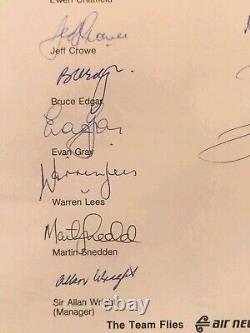 Ewen Chatfield
Jeff Crowe
Jeff Crowe
B Edgar
Bruce Edgar
Evan Gray
Warren Lees
Warren Lees
Martin Snedden
Allan Wright
Sir Allan Wright
(Manager)
The Team Flies air ne